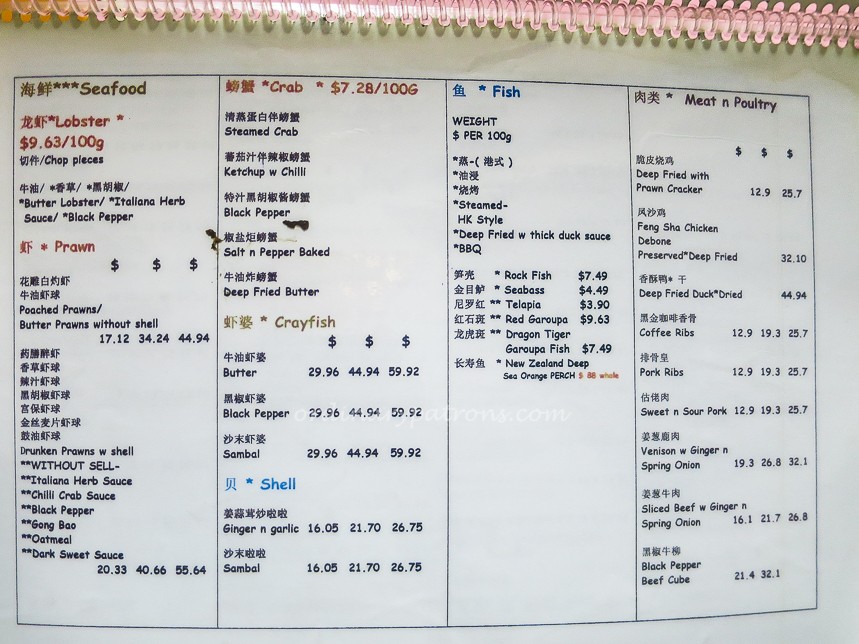 海鲜***Seafood
龙虾*Lobster *
$9.63/100g
切件/Chop pieces
牛油/ *香草/ *黑胡椒/
*Butter Lobster/ *Italiana Herb
Sauce/ *Black Pepper
虾 * Prawn
$ $ $
花雕白灼虾
牛油虾球
Poached Prawns/
Butter Prawns without shell
17.12 34.24 44.94
药膳醉虾
香草虾球
辣汁虾球
黑胡椒虾球
宫保虾球
金丝麦片虾球
鼓油虾球
Drunken Prawns w shell
**WITHOUT SELL-
**Italiana Herb Sauce
**Chilli Crab Sauce
**Black Pepper
**Gong Bao
**Oatmeal
**Dark Sweet Sauce
20.33 40.66 55.64
螃蟹 *Crab * $7.28/100G
清蒸蛋白伴螃蟹
Steamed Crab
蕃茄汁伴辣椒螃蟹
Ketchup w Chilli
特汁黑胡椒酱螃蟹
Black Pepper
椒盐炬螃蟹
Salt n Pepper Baked
牛油炸螃蟹
Deep Fried Butter
虾婆 * Crayfish
$ $ $
牛油虾婆
Butter 29.96 44.94 59.92
黑椒虾婆
Black Pepper 29.96 44.94 59.92
沙末虾婆
Sambal 29.96 44.94 59.92
贝 * Shell
姜蒜茸炒啦啦
Ginger n garlic 16.05 21.70 26.75
沙末啦啦
Sambal 16.05 21.70 26.75
鱼 * Fish
WEIGHT
$ PER 100g
*蒸-( 港式 )
*油浸
*烧烤
*Steamed-
HK Style
*Deep Fried w thick duck sauce
*BBQ
笋壳 * Rock Fish $7.49
金目鲈 * Seabass $4.49
尼罗红 ** Telapia $3.90
红石斑 ** Red Garoupa $9.63
龙虎斑 ** Dragon Tiger
Garoupa Fish $7.49
长寿鱼 * New Zealand Deep
Sea Orange PERCH $ 88 whole
肉类 * Meat n Poultry
$ $ $
脆皮烧鸡
Deep Fried with
Prawn Cracker 12.9 25.7
风沙鸡
Feng Sha Chicken
Debone
Preserved*Deep Fried 32.10
香酥鸭* 干
Deep Fried Duck*Dried 44.94
黑金咖啡香骨
Coffee Ribs 12.9 19.3 25.7
排骨皇
Pork Ribs 12.9 19.3 25.7
估佬肉
Sweet n Sour Pork 12.9 19.3 25.7
姜葱鹿肉
Venison w Ginger n
Spring Onion 19.3 26.8 32.1
姜葱牛肉
Sliced Beef w Ginger n
Spring Onion 16.1 21.7 26.8
黑椒牛柳
Black Pepper
Beef Cube 21.4 32.1